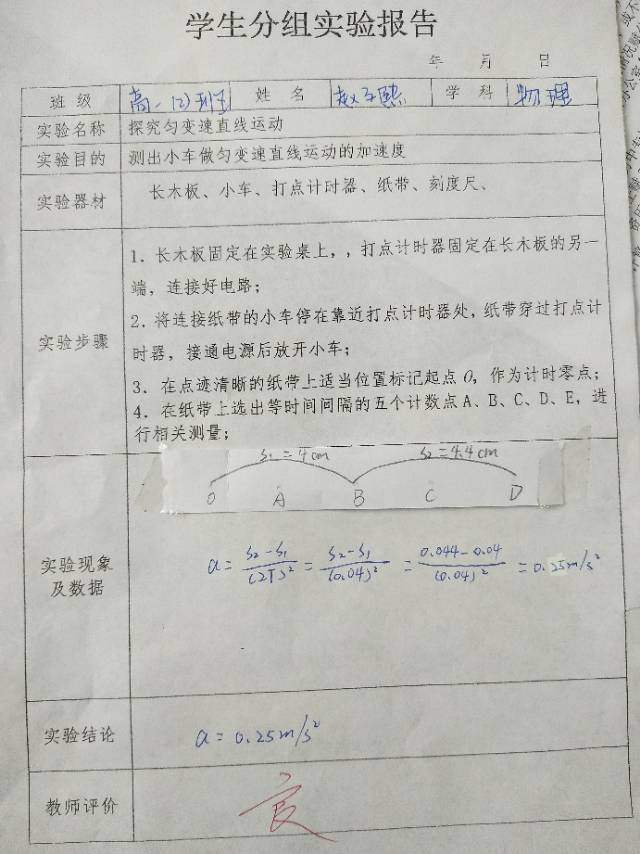 学生分组实验报告
年 月 日
班级 高一(2)班 姓名 赵子熙 学科 物理
实验名称 探究匀变速直线运动
实验目的 测出小车做匀变速直线运动的加速度
实验器材 长木板、小车、打点计时器、纸带、刻度尺、
实验步骤
1. 长木板固定在实验桌上,,打点计时器固定在长木板的另一
端,连接好电路;
2. 将连接纸带的小车停在靠近打点计时器处,纸带穿过打点计
时器,接通电源后放开小车;
3. 在点迹清晰的纸带上适当位置标记起点O,作为计时零点;
4. 在纸带上选出等时间间隔的五个计数点A、B、C、D、E,进
行相关测量;
实验现象
及数据
S₁=4cm S₂=4.4cm
O A B C D
a = (S₂-S₁)/(2T)² = (S₂-S₁)/(0.04)² = (0.044-0.04)/(0.04)² = 0.25m/s²
实验结论 a = 0.25m/s²
教师评价